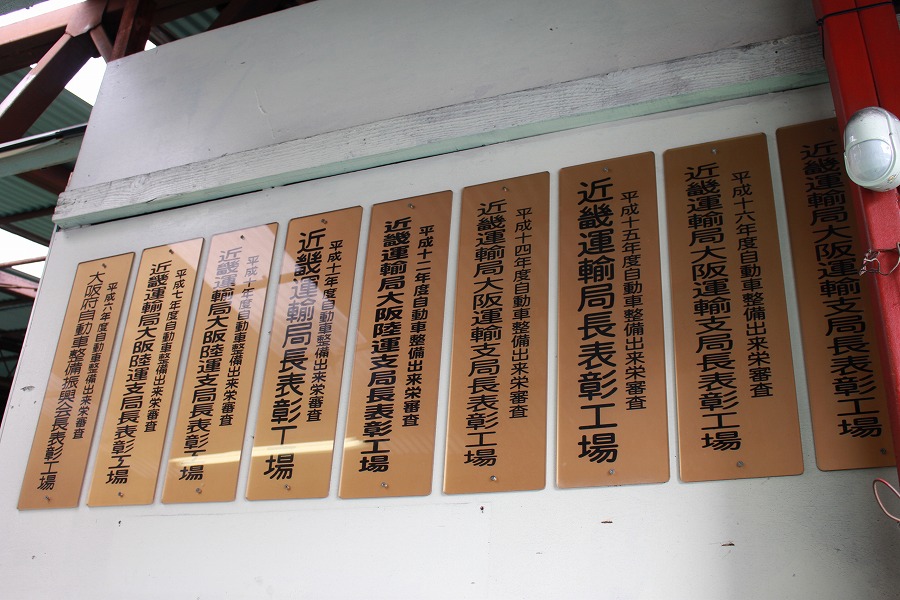 平成六年度自動車整備出来栄審査
大阪府自動車整備振興会長表彰工場
平成七年度自動車整備出来栄審査
近畿運輸局大阪陸運支局長表彰工場
平成十年度自動車整備出来栄審査
近畿運輸局大阪陸運支局長表彰工場
平成十一年度自動車整備出来栄審査
近畿運輸局長表彰工場
平成十二年度自動車整備出来栄審査
近畿運輸局大阪陸運支局長表彰工場
平成十四年度自動車整備出来栄審査
近畿運輸局大阪運輸支局長表彰工場
平成十五年度自動車整備出来栄審査
近畿運輸局長表彰工場
平成十六年度自動車整備出来栄審査
近畿運輸局大阪運輸支局長表彰工場
近畿運輸局大阪運輸支局長表彰工場